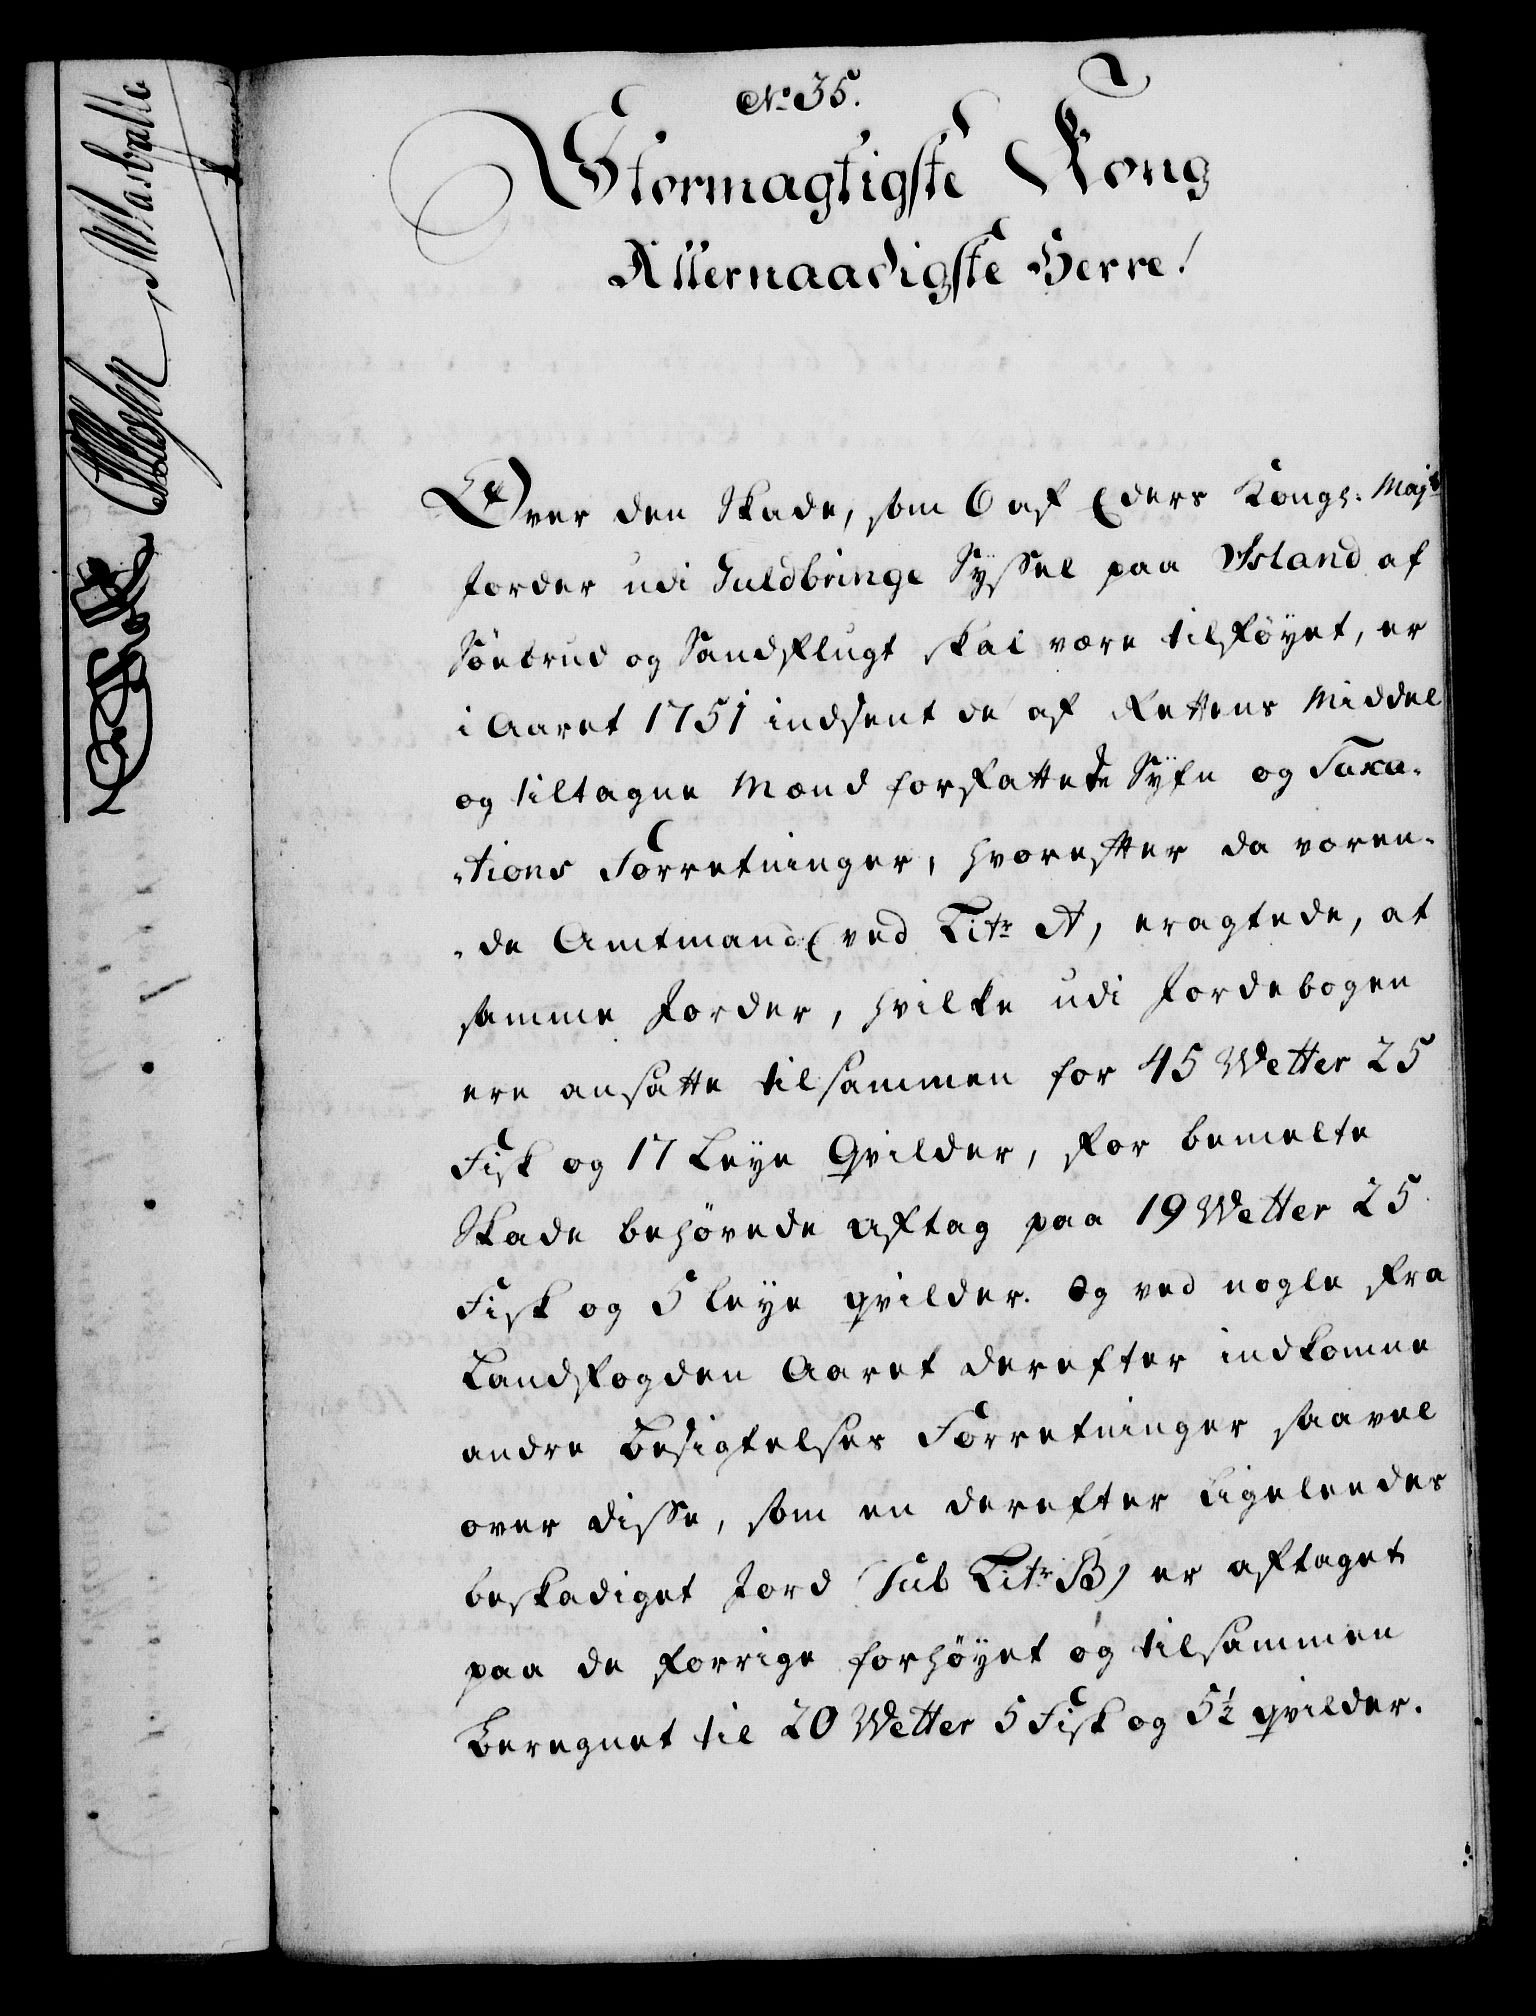 No 35.
Stormagtigste Kong
Allernaadigste Herre!
Over den Skade, som 6 af Eders Kongl: Majts
Jorder udi Guldbringe Sÿssel paa Island af
Söebrud og Sandflugt skal være tilföyet, er
i Aaret 1751 indsent de af Rettens Middel
og tiltagne Mænd forfattede Sÿfn og Taxa-
-tions Forretninger, hvorefter da væren-
-de Amtmand (ved Litr A, eragtede, at
samme Jorder, hvilke udi Jordebogen
ere ansatte tilsammen for 45 Wetter 25
Fisk og 17 Leye Qvilder, for bemelte
Skade behövede aftag paa 19 Wetter 25
Fisk og 5 leye qvilder. Og ved nogle fra
Landfogden Aaret derefter indkomne
andre Besigtelses Forretninger saavel
over disse, som en derefter ligeleedes
beskadiget Jord (Sub Litr B) er aftaget
paa de forrige forhöyet og tilsammen
Beregnet til 20 Wetter 5 Fisk og 5½ qvilder.